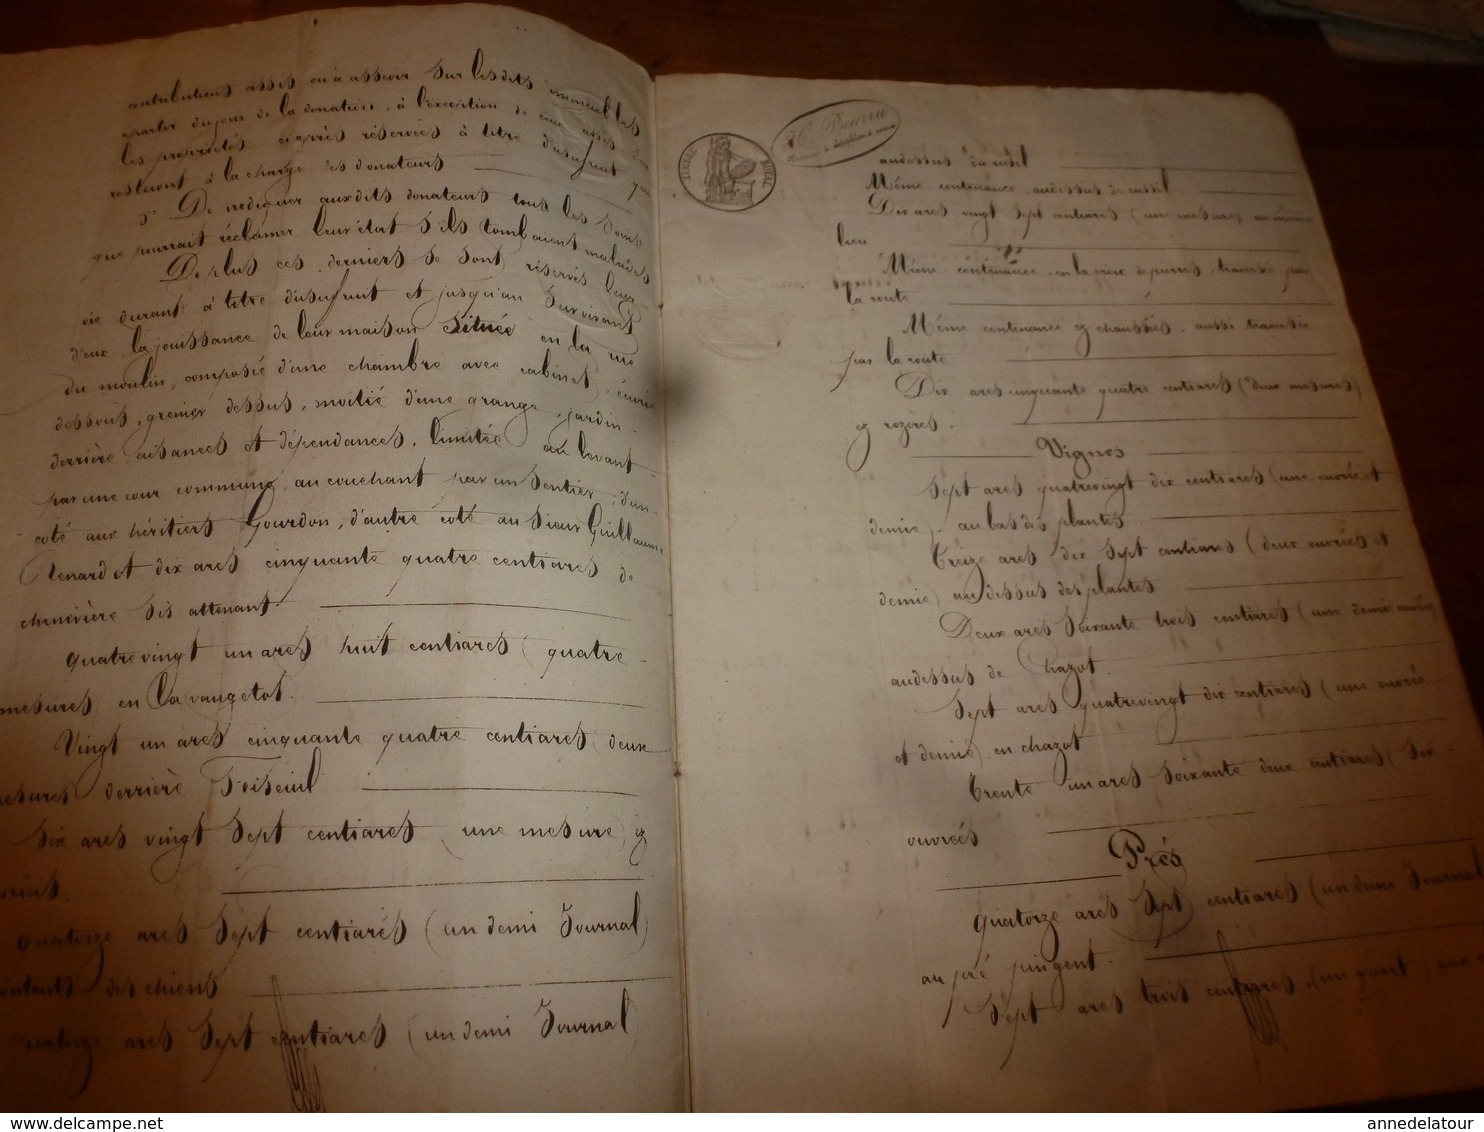 contributions assis ou à asseoir sur les dits immeubles
apartir du jour de la donation, à l'exception de ceux assis sur
les propriétés ciaprès réservées à titre d'usufruit qui
resteront à la charge des donateurs
3° De prodiguer auxdits donateurs tous les soins
que pourrait réclamer leur état s'ils tombaient malades
De plus ces derniers se sont réservés leur
vie durant à titre d'usufruit et jusqu'au survivant
d'eux la jouissance de leur maison située en la rue
du moulin, composée d'une chambre avec cabinet, écurie
dessous, grenier dessus, moitié d'une grange, jardin
derrière aisances et dépendances, limitée au levant
par une cour commune, au couchant par un sentier, d'un
coté aux héritiers Gourdon, d'autre coté au sieur Guillaume
Renard et dix ares cinquante quatre centiares de
chenevière sis attenant
Quatrevingt un ares huit centiares (quatre
mesures) en la vaugetot.
Vingt un ares cinquante quatre centiares (deux
mesures) derrière Foiseuil
Six ares vingt sept centiares (une mesure) ez
Quatorze ares sept centiares (un demi Journal)
des chiens
Quatorze ares sept centiares (un demi Journal)
TIMBRE ROYAL
audessus du
Même contenance audessus de
Dix ares vingt sept centiares (une mesure) au même
lieu
Même contenance, en la croix de pierres, traversée par
la route
Même contenance ez chaussés, aussi traversée
par la route
Dix ares cinquante quatre centiares (deux mesures)
ez rozères.
Vignes
Sept ares quatrevingt dix centiares (une ouvrée et
demie) au bas des plantes
Treize ares dix sept centiares (deux ouvrées et
demie) audessus des plantes
Deux ares soixante trois centiares (une demi ouvrée)
audessus de Chazot.
Sept ares quatrevingt dix centiares (une ouvrée
et demie) en chazot
Trente un ares soixante deux centiares (six
ouvrées
Prés
Quatorze ares sept centiares (un demi Journal
au pré pingent.
Sept ares trois centiares (un quart) aux
© Delcampe.net
annedelatour